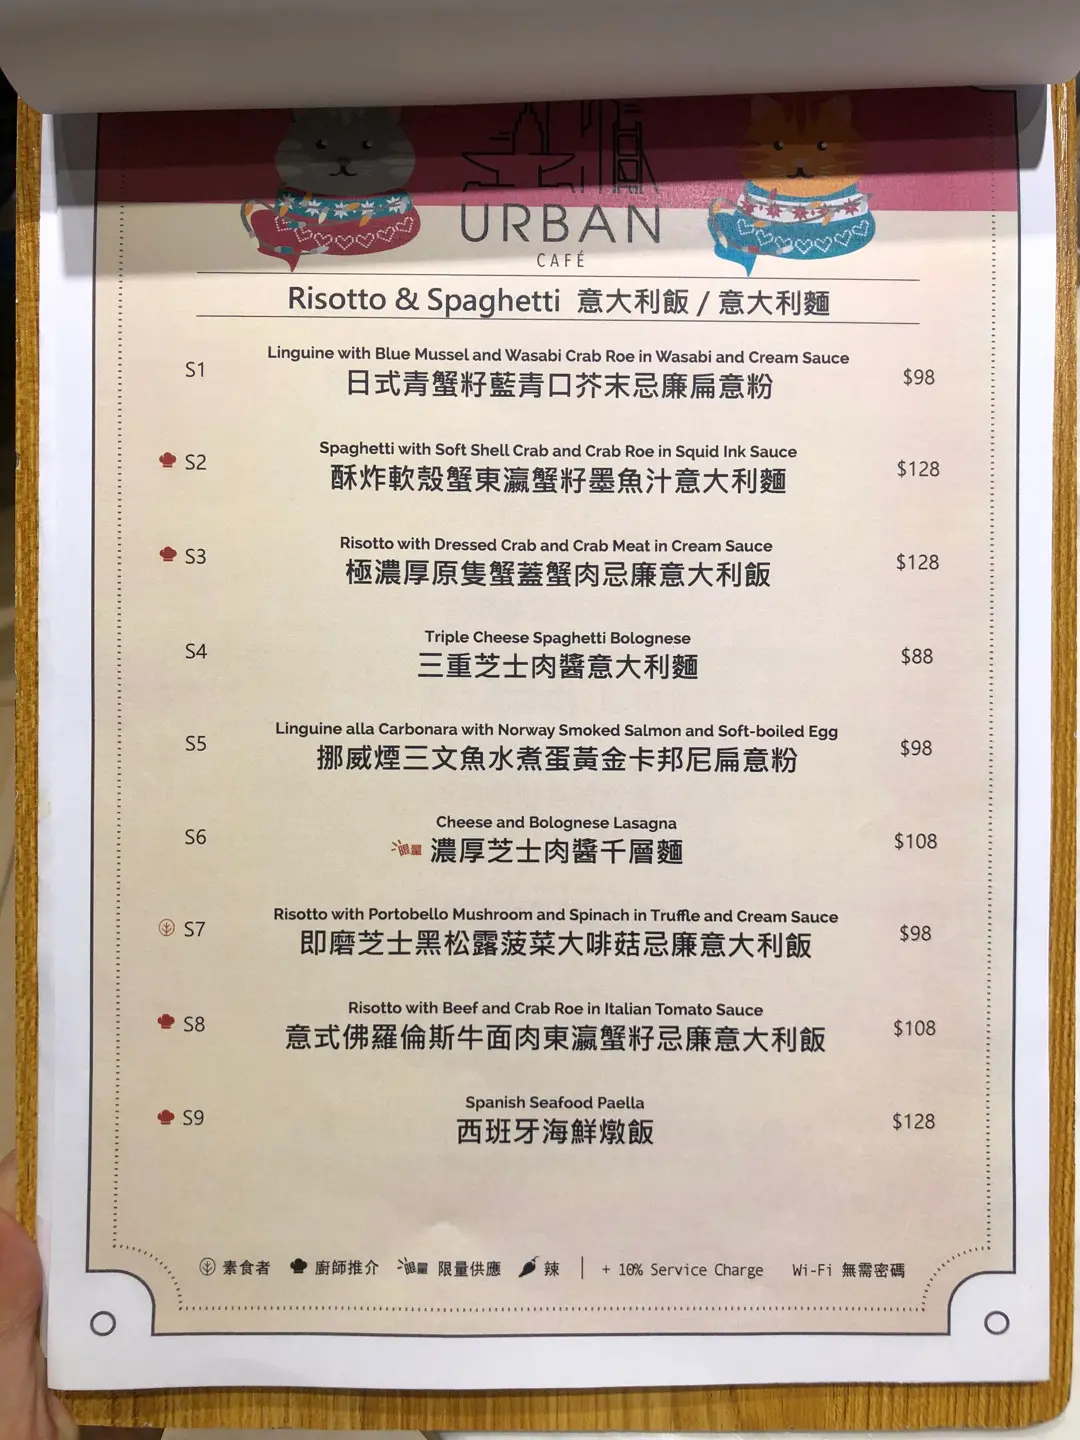 URBAN
CAFÉ
Risotto & Spaghetti 意大利飯 / 意大利麵
Linguine with Blue Mussel and Wasabi Crab Roe in Wasabi and Cream Sauce
S1 日式青蟹籽藍青口芥末忌廉扁意粉 $98
Spaghetti with Soft Shell Crab and Crab Roe in Squid Ink Sauce
S2 酥炸軟殼蟹東瀛蟹籽墨魚汁意大利麵 $128
Risotto with Dressed Crab and Crab Meat in Cream Sauce
S3 極濃厚原隻蟹蓋蟹肉忌廉意大利飯 $128
Triple Cheese Spaghetti Bolognese
S4 三重芝士肉醬意大利麵 $88
Linguine alla Carbonara with Norway Smoked Salmon and Soft-boiled Egg
S5 挪威煙三文魚水煮蛋黃金卡邦尼扁意粉 $98
Cheese and Bolognese Lasagna
S6 限量 濃厚芝士肉醬千層麵 $108
Risotto with Portobello Mushroom and Spinach in Truffle and Cream Sauce
S7 即磨芝士黑松露菠菜大啡菇忌廉意大利飯 $98
Risotto with Beef and Crab Roe in Italian Tomato Sauce
S8 意式佛羅倫斯牛面肉東瀛蟹籽忌廉意大利飯 $108
Spanish Seafood Paella
S9 西班牙海鮮燉飯 $128
素食者 廚師推介 限量 限量供應 辣 | + 10% Service Charge Wi-Fi 無需密碼